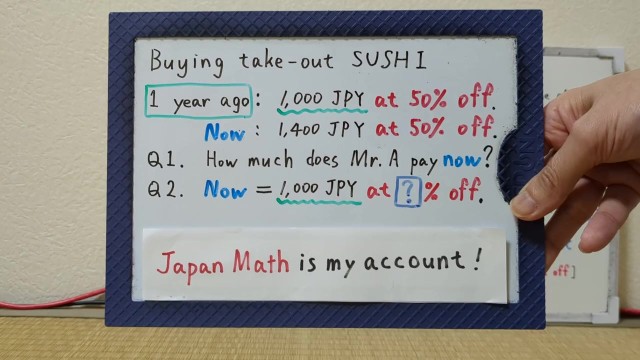 Buying take-out SUSHI
1 year ago : 1,000 JPY at 50% off.
Now : 1,400 JPY at 50% off.
Q1. How much does Mr. A pay now?
Q2. Now = 1,000 JPY at ? % off.
Japan Math is my account!
off]